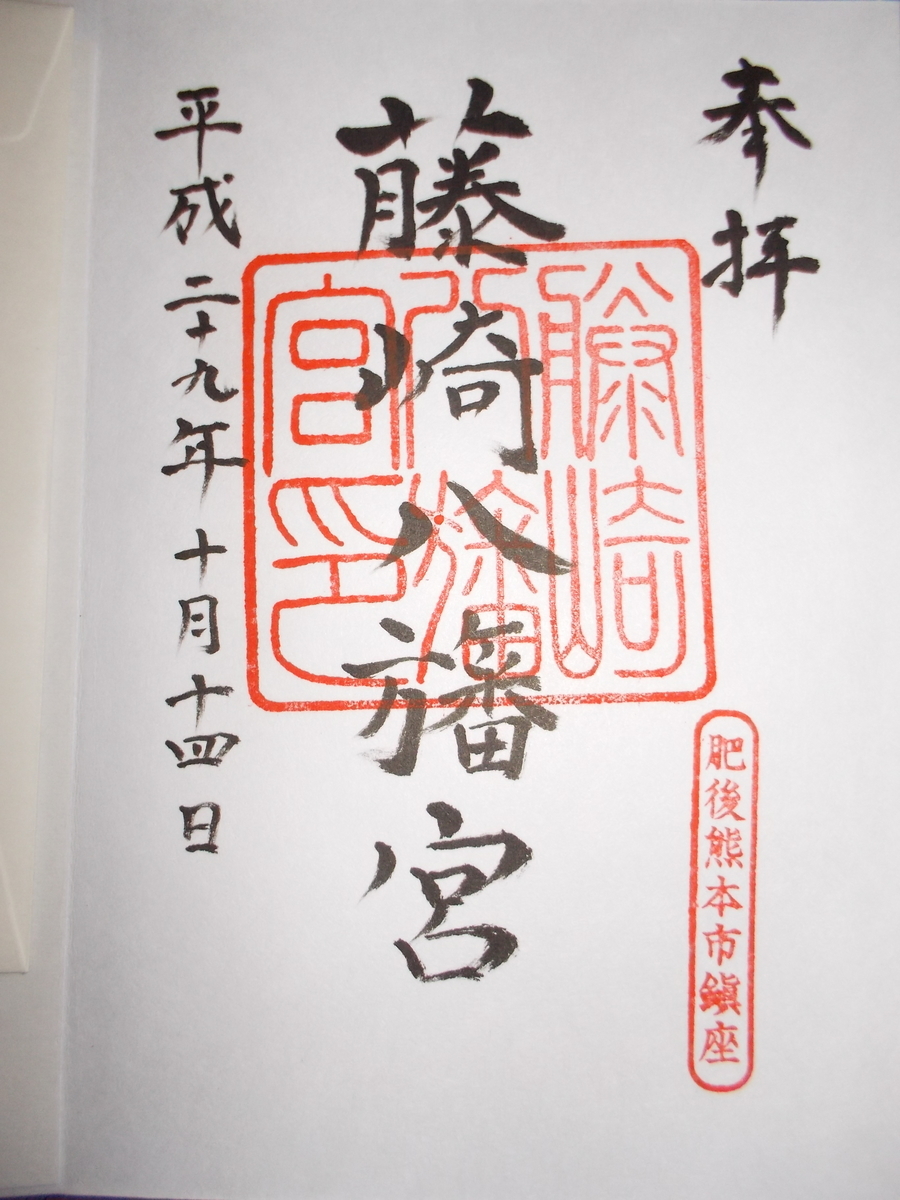 奉拝
肥後熊本市鎭座
藤崎八旛宮
藤崎八旛宮印
平成二十九年十月十四日